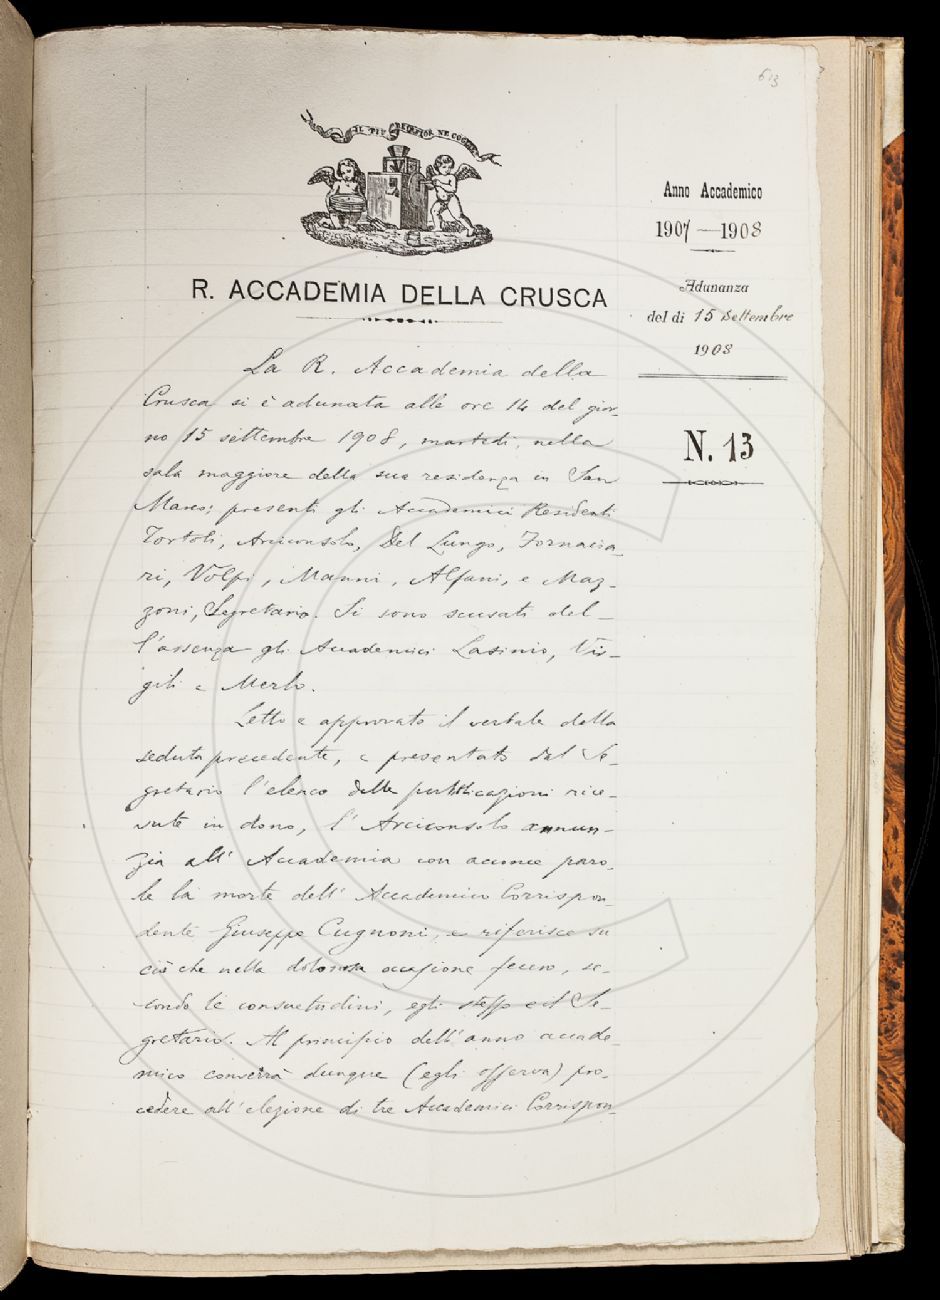 613
IL PIÙ BEL FIOR NE COGLIE
R. ACCADEMIA DELLA CRUSCA
Anno Accademico
1907—1908
Adunanza
del dì 15 Settembre
1908
N. 13
La R. Accademia della
Crusca si è adunata alle ore 14 del gior-
no 15 settembre 1908, martedì, nella
sala maggiore della sua residenza in San
Marco; presenti gli Accademici Residenti
Tortoli, Arciconsolo, Del Lungo, Fornacia-
ri, Volpi, Manni, Alfani, e Maz-
zoni, Segretario. Si sono scusati del-
l'assenza gli Accademici Lasinio, Vir-
gili e Merlo.
Letto e approvato il verbale della
seduta precedente, e presentato dal Se-
gretario l'elenco delle pubblicazioni rice-
vute in dono, l'Arciconsolo annun-
zia all'Accademia con acconce paro-
le la morte dell'Accademico Corrispon-
dente Giuseppe Cugnoni, e riferisce su
ciò che nella dolorosa occasione fecero, se-
condo le consuetudini, egli stesso ed il Se-
gretario. Al principio dell'anno accade-
mico converrà dunque (egli osserva) pro-
cedere all'elezione di tre Accademici Corrispon-